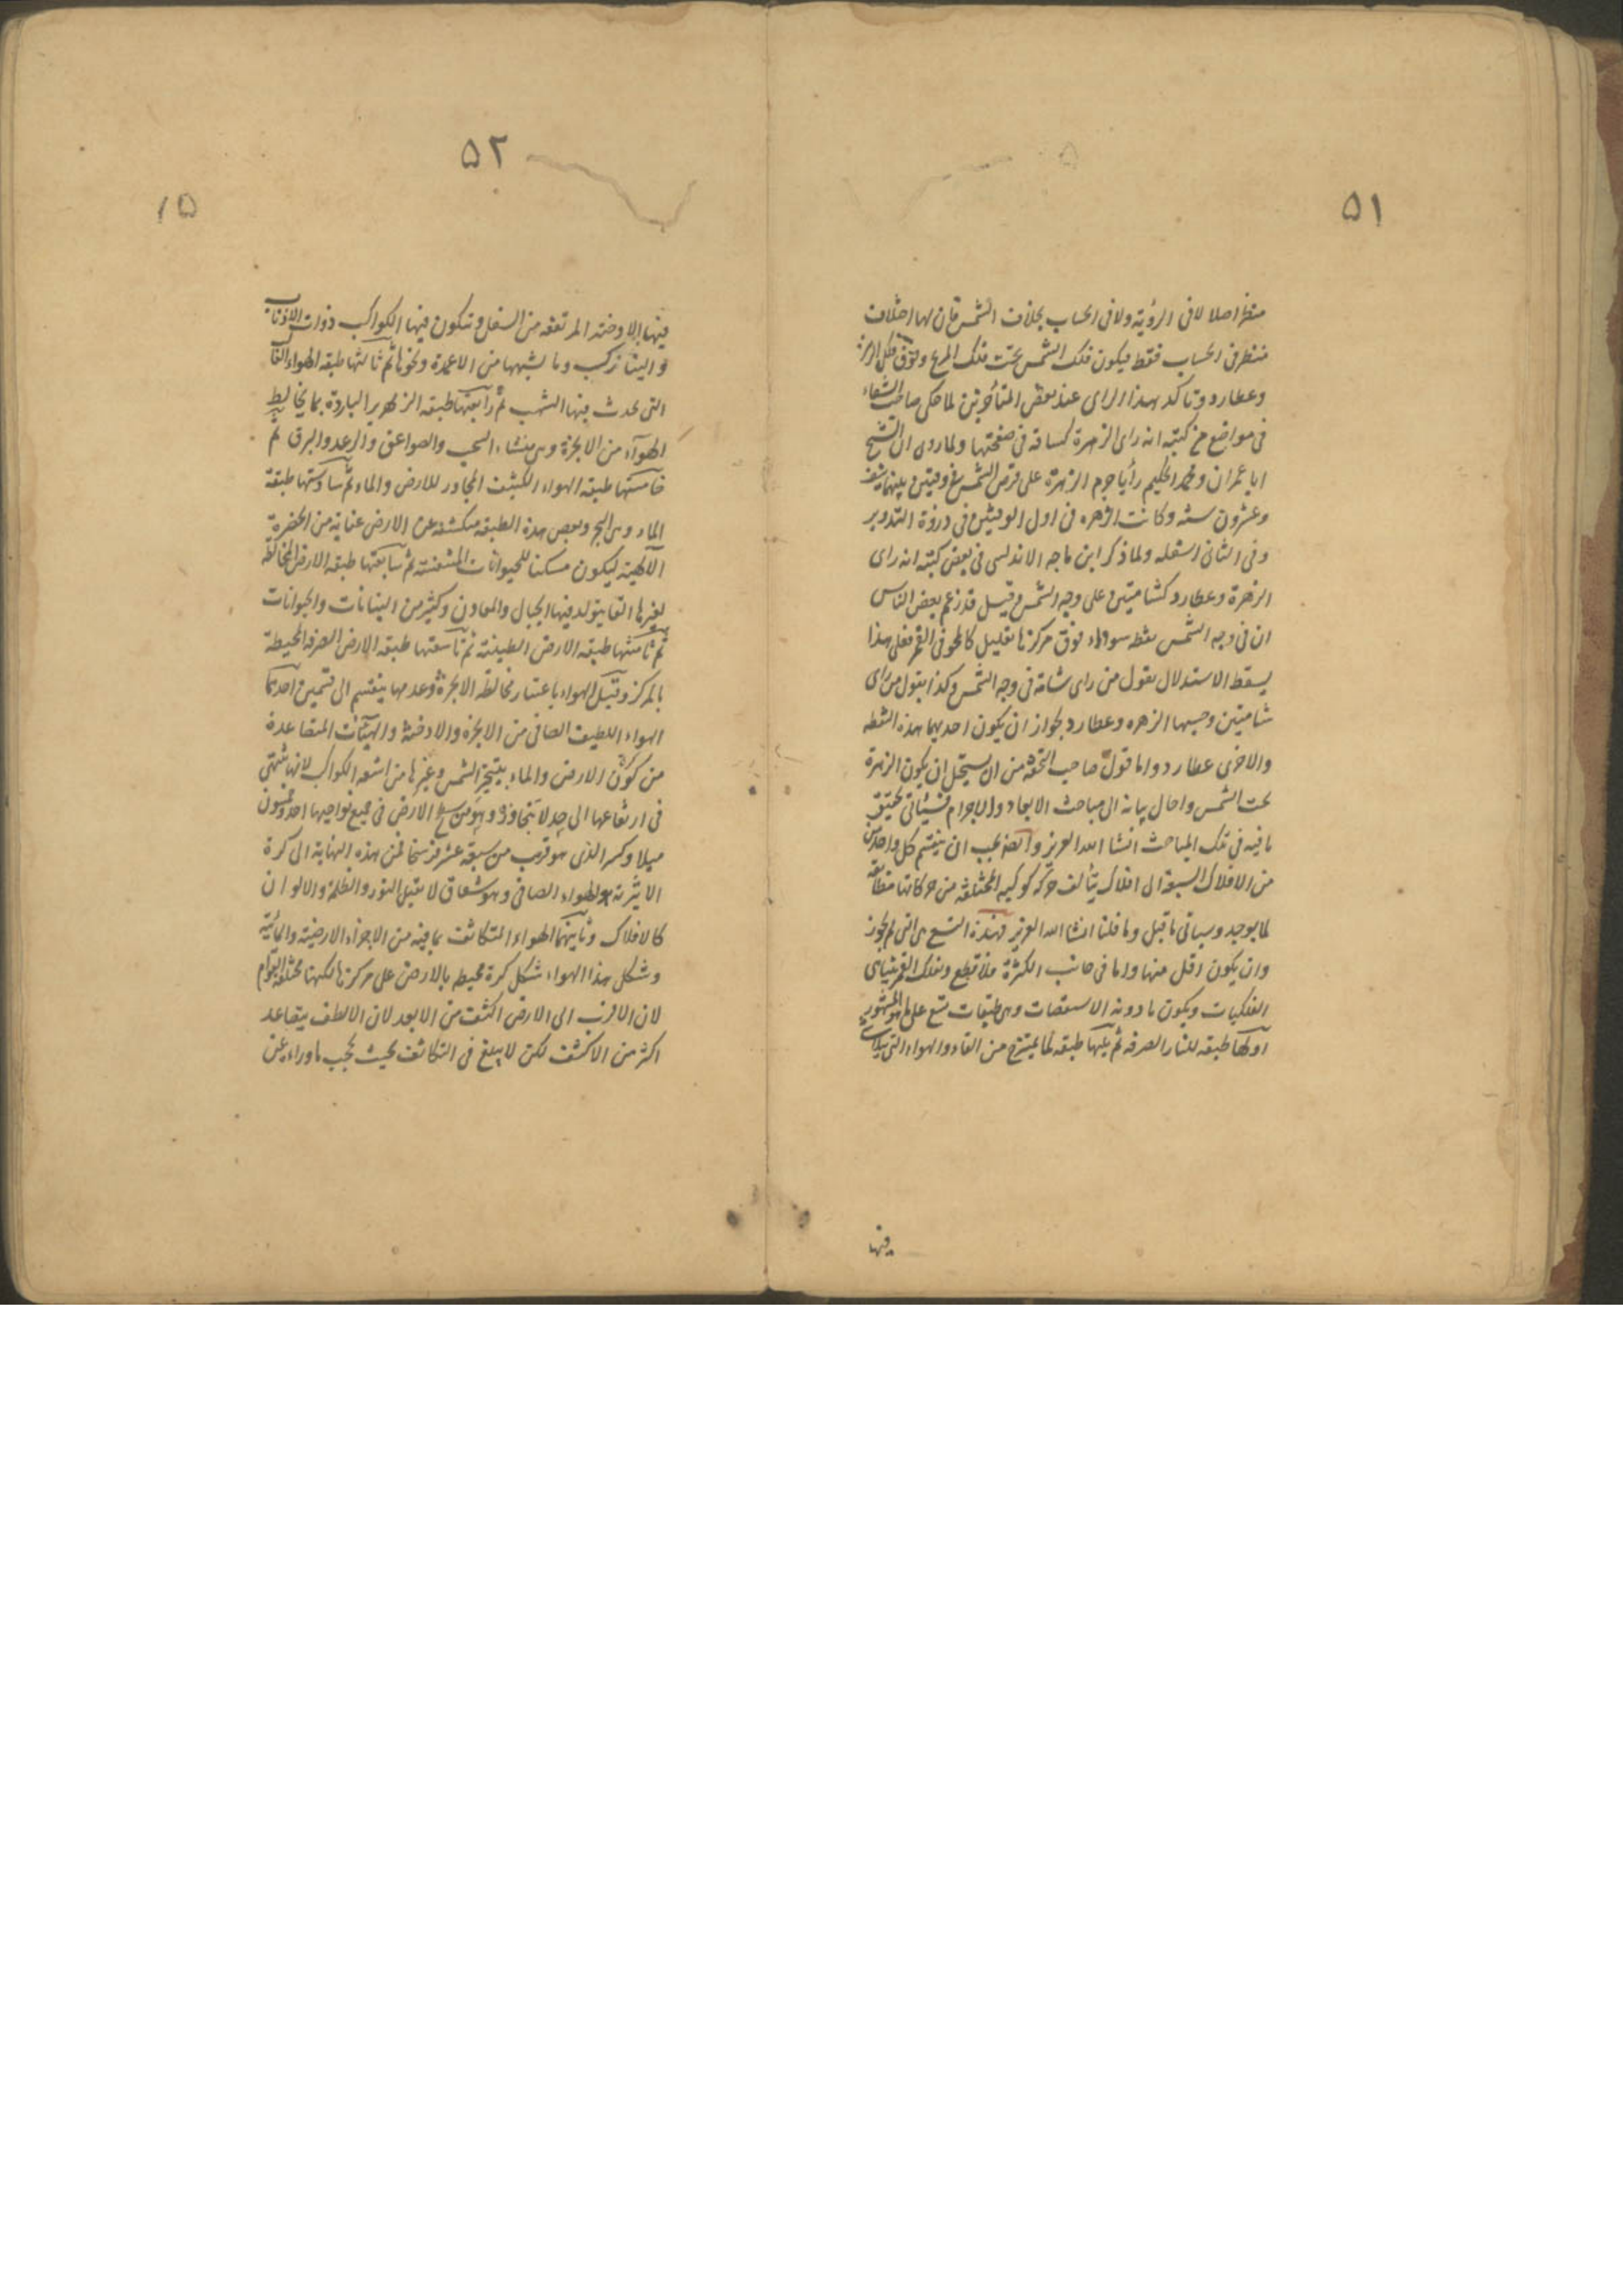 ۵۱
منظر اصلا لا فی الرؤیة ولا فی الحساب بخلاف الشمس فان لها اختلاف
منظر فی الحساب فقط فیکون فلک الشمس تحت فلک المریخ وفوق فلکی الزهرة
وعطارد وتاکد هذا الرای عند بعض المتأخرین لما حکی صاحب الشفاء
فی مواضع من کتبه انه رای الزهرة کشامة فی صفحتها ولما روی ان الشیخ
ابا عمران ومحمد الحکیم رأیا جرم الزهرة علی قرص الشمس فی وقتین بینهما نیف
وعشرون سنة وکانت الزهره فی اول الوقتین فی ذروة التدویر
وفی الثانی اسفله ولما ذکر ابن ماجه الاندلسی فی بعض کتبه انه رای
الزهرة وعطارد کشامتین علی وجه الشمس وقیل قد زعم بعض الناس
ان فی وجه الشمس نقطه سوداء فوق مرکزها بقلیل کالمحو فی القمر فعلی هذا
یسقط الاستدلال بقول من رای شامة فی وجه الشمس وکذا بقول من رای
شامتین وحسبهما الزهره وعطارد لجواز ان یکون احدیهما هذه النقطه
والاخری عطارد واما قول صاحب التحفة من ان یستحیل ان یکون الزهرة
تحت الشمس واحال بیانه الی مباحث الابعاد والاجرام فسیأتی تحقیق
ما فیه فی تلک المباحث انشا الله العزیز وایضا یجب ان ینقسم کل واحد من
من الافلاک السبعة الی افلاک یتألف حرکة کوکبه المختلفة من حرکاتها مطابقة
لما یوجد وسیاتی ما قیل وما قلنا انشا الله العزیز فهذه التسع هی التی لم یجوز
وان یکون اقل منها واما فی جانب الکثرة فلا قطع وبفلک القمر یتناهی
الفلکیات ویکون ما دونه الاسطقسات وهی طبقات تسع علی ما هو المشهور
اولها طبقه للنار الصرفه ثم یلیها طبقه لما یمتزج من النار والهواء التی یتلاشی
فیها
۵۲
۱۵
فیها الادخنه المرتفعه من السفل وتتکون فیها الکواکب ذوات الاذناب
والنیازک وما یشبهها من الاعمدة ونحوها ثم ثالثها طبقه الهواء الغالب
التی یحدث فیها الشهب ثم رابعتها طبقه الزمهریر الباردة بما یخالط
الهوآء من الابخرة وهی منشاء السحب والصواعق والرعد والبرق ثم
خامستها طبقه الهواء الکثیف المجاور للارض والماء ثم سادستها طبقة
الماء وهی البحر وبعض هذه الطبقه منکشفة عن الارض عنایة من الحضرة
الآلهیة لیکون مسکنا للحیوانات المتنفسة ثم سابعتها طبقه الارض المخالطة
لغیرها التی یتولد فیها الجبال والمعادن وکثیر من النباتات والحیوانات
ثم ثامنتها طبقه الارض الطینیة ثم تاسعتها طبقه الارض الصرفه المحیطة
بالمرکز وقیل الهواء باعتبار مخالطة الابخرة وعدمها ینقسم الی قسمین احدهما
الهواء اللطیف الصافی من الابخرة والادخنة والهیئات المتصاعدة
من کون الارض والماء بتبخیر الشمس وغیرها من اشعه الکواکب لانها تنتهی
فی ارتفاعها الی حد لا تتجاوزه وهو من سطح الارض فی جمیع نواحیها احد وخمسون
میلا وکسر الذی هو قریب من سبعة عشر فرسخا فمن هذه النهایة الی کرة
الاثیر هو الهواء الصافی وهو شفاف لا یقبل النور والظلمة والالوان
کالافلاک وثانیهما الهواء المتکاثف بما فیه من الاجزاء الارضیة والمائیة
وشکل هذا الهواء شکل کرة محیط بالارض علی مرکزها لکنها مختلفة القوام
لان الاقرب الی الارض اکثف من الابعد لان الالطف یتصاعد
اکثر من الاکثف لکن لا یبلغ فی التکاثف بحیث یحجب ما وراءه عن